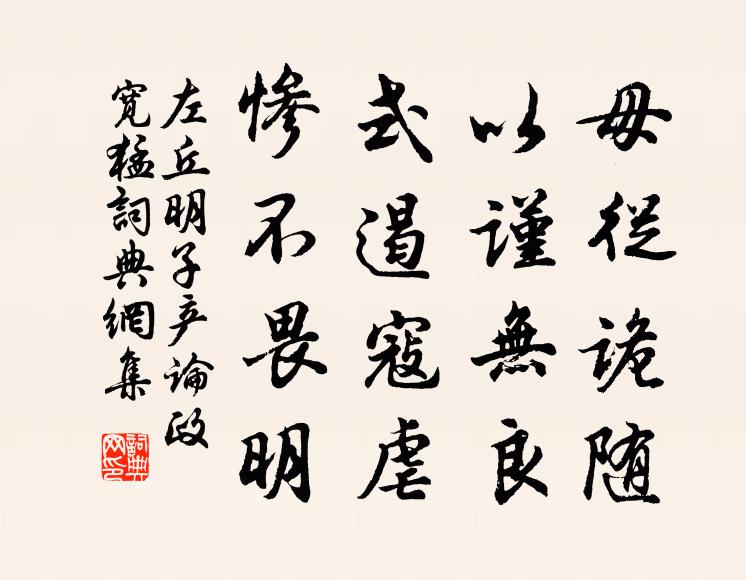 毋從詭随
以謹無良
式遏寇虐
惨不畏明
左丘明子产論政
寬猛詞典網集
詞典网印